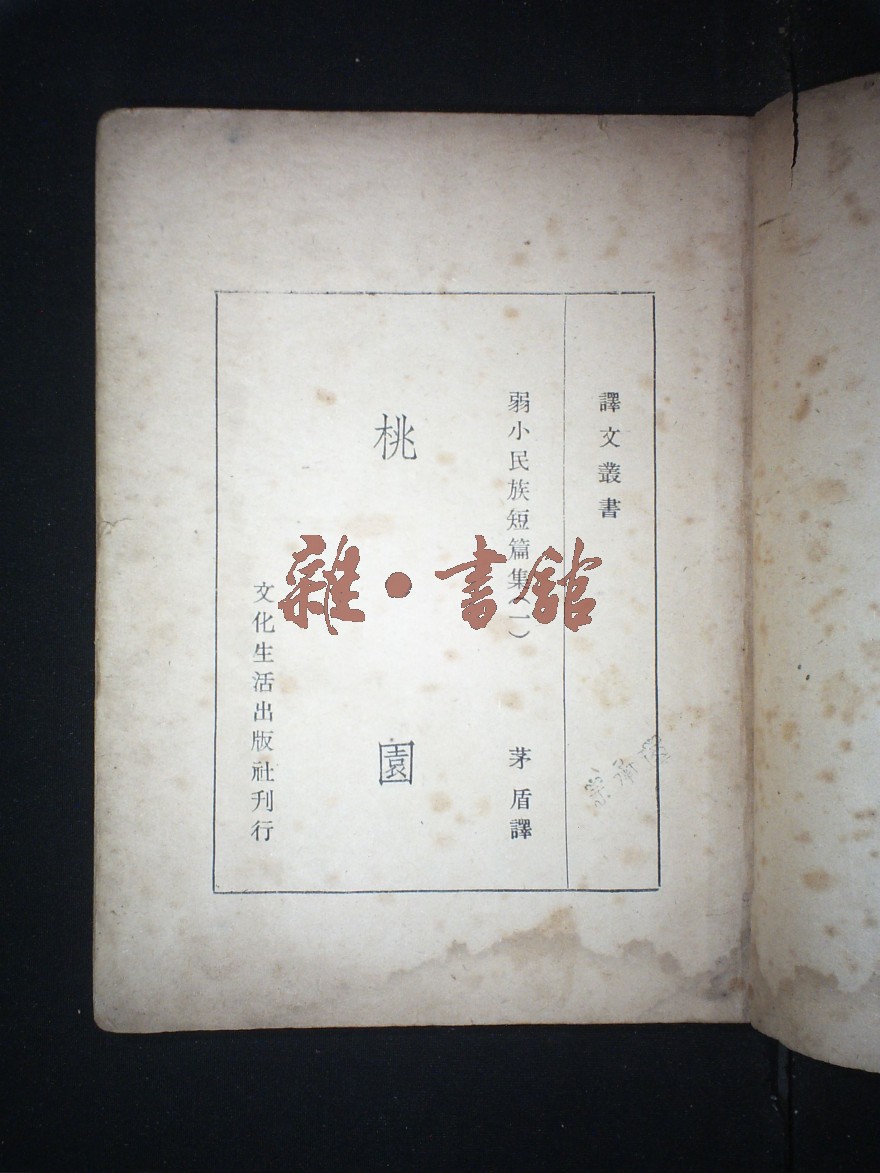 譯文叢書
弱小民族短篇集(一)
茅盾譯
桃園
文化生活出版社刊行
雜·書館